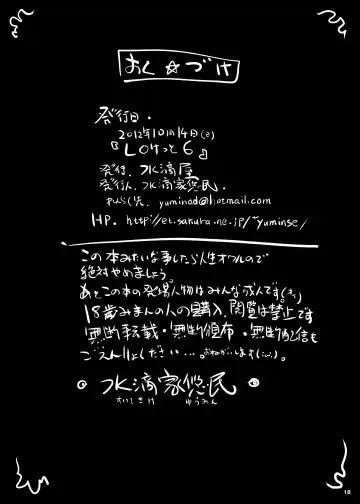 おく☆づけ
発行日・
2012年10月14日(日)
『LOけっと6』
発行、水滴屋
発行人、水滴家悠民・
れんらく先、yuminad@hotmail.com
HP. http://et.sakura.ne.jp/~yuminse/
この本みたいな事したら人生オワルので
絶対やめましょう。
あとこの本の発場人物はみんな成人です
18歳みまんの人の購入、閲覧は禁止です
無断転載・無断頒布・無断配信も
ごえんりょください…おねがいします(;_;)。
水滴家悠民
すいてきけ ゆうみん
18